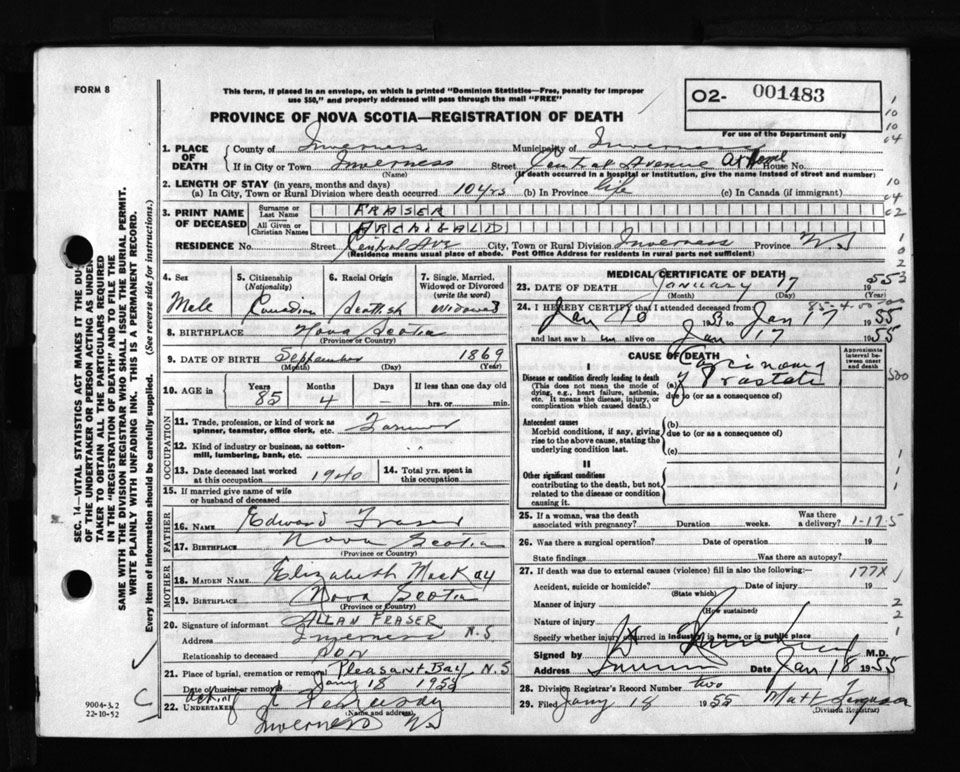 FORM 8
This form, if placed in an envelope, on which is printed "Dominion Statistics—Free, penalty for improper
use $50," and properly addressed will pass through the mail "FREE"
O2- 001483
For use of the Department only
PROVINCE OF NOVA SCOTIA—REGISTRATION OF DEATH
1. PLACE OF DEATH
County of Inverness Municipality of Inverness
If in City or Town Inverness Street Central Avenue At Home House No.
(Name) (If death occurred in a hospital or institution, give the name instead of street and number)
2. LENGTH OF STAY (in years, months and days)
(a) In City, Town or Rural Division where death occurred 10 yrs (b) In Province life (c) In Canada (if immigrant)
3. PRINT NAME OF DECEASED
Surname or Last Name FRASER
All Given or Christian Names ARCHIBALD
RESIDENCE No. Street Central Ave City, Town or Rural Division Inverness Province N.S
(Residence means usual place of abode. Post Office Address for residents in rural parts not sufficient)
4. Sex Male
5. Citizenship (Nationality) Canadian
6. Racial Origin Scottish
7. Single, Married, Widowed or Divorced (write the word) Widowed
8. BIRTHPLACE Nova Scotia
(Province or Country)
9. DATE OF BIRTH September 1869
(Month) (Day) (Year)
10. AGE in Years 85 Months 4 Days — If less than one day old hrs. or min.
OCCUPATION
11. Trade, profession, or kind of work as spinner, teamster, office clerk, etc. Farmer
12. Kind of industry or business, as cotton-mill, lumbering, bank, etc. "
13. Date deceased last worked at this occupation 1940
14. Total yrs. spent in this occupation
15. If married give name of wife or husband of deceased
FATHER
16. NAME Edward Fraser
17. BIRTHPLACE Nova Scotia
(Province or Country)
MOTHER
18. MAIDEN NAME Elizabeth MacKay
19. BIRTHPLACE Nova Scotia
(Province or Country)
20. Signature of informant ALLAN FRASER
Address Inverness N.S
Relationship to deceased SON
21. Place of burial, cremation or removal Pleasant Bay, N.S
Date of burial or removal Jany 18 1955
22. UNDERTAKER
(Name and address)
Inverness N.S
MEDICAL CERTIFICATE OF DEATH
23. DATE OF DEATH January 17 1955
(Month) (Day) (Year)
24. I HEREBY CERTIFY that I attended deceased from
Jan 10 Jan 17 1955
and last saw h im alive on Jan 17 1955
CAUSE OF DEATH
Approximate interval between onset and death
I
Disease or condition directly leading to death
(This does not mean the mode of dying, e.g., heart failure, asthenia, etc. It means the disease, injury, or complication which caused death.)
(a) Carcinoma Prostate
due to (or as a consequence of)
Antecedent causes
Morbid conditions, if any, giving rise to the above cause, stating the underlying condition last.
(b)
due to (or as a consequence of)
(c)
II
Other significant conditions
contributing to the death, but not related to the disease or condition causing it.
25. If a woman, was the death associated with pregnancy? Duration weeks. Was there a delivery?
26. Was there a surgical operation? Date of operation 19
State findings Was there an autopsy?
27. If death was due to external causes (violence) fill in also the following:— 177X
Accident, suicide or homicide? Date of injury 19
(State which)
Manner of injury
(How sustained)
Nature of injury
Specify whether injury occurred in industry, in home, or in public place
Signed by M.D.
Address Inverness Date Jan 18 1955
28. Division Registrar's Record Number two
29. Filed Jany 18 1955 Matt Ferguson
(Division Registrar)
SEC. 14—VITAL STATISTICS ACT MAKES IT THE DU-
OF THE UNDERTAKER OR PERSON ACTING AS UNDER
TAKER TO OBTAIN ALL THE PARTICULARS REQUIRED
IN THE "REGISTRATION OF DEATH" AND TO FILE THE
SAME WITH THE DIVISION REGISTRAR WHO SHALL ISSUE THE BURIAL PERMIT.
WRITE PLAINLY WITH UNFADING INK. THIS IS A PERMANENT RECORD.
Every item of information should be carefully supplied. (See reverse side for instructions.)
9004-3.2
22-10-52